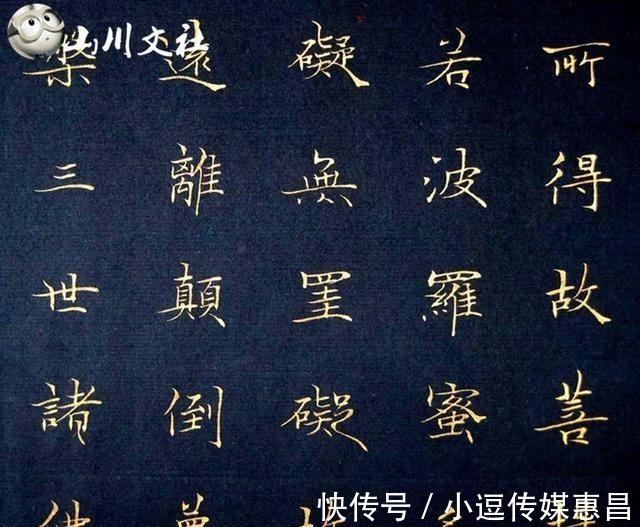 所得故菩
若波羅蜜
礙無罣礙
遠離顛倒
槃三世諸佛
山川文社
快传号 / 小逗传媒惠昌